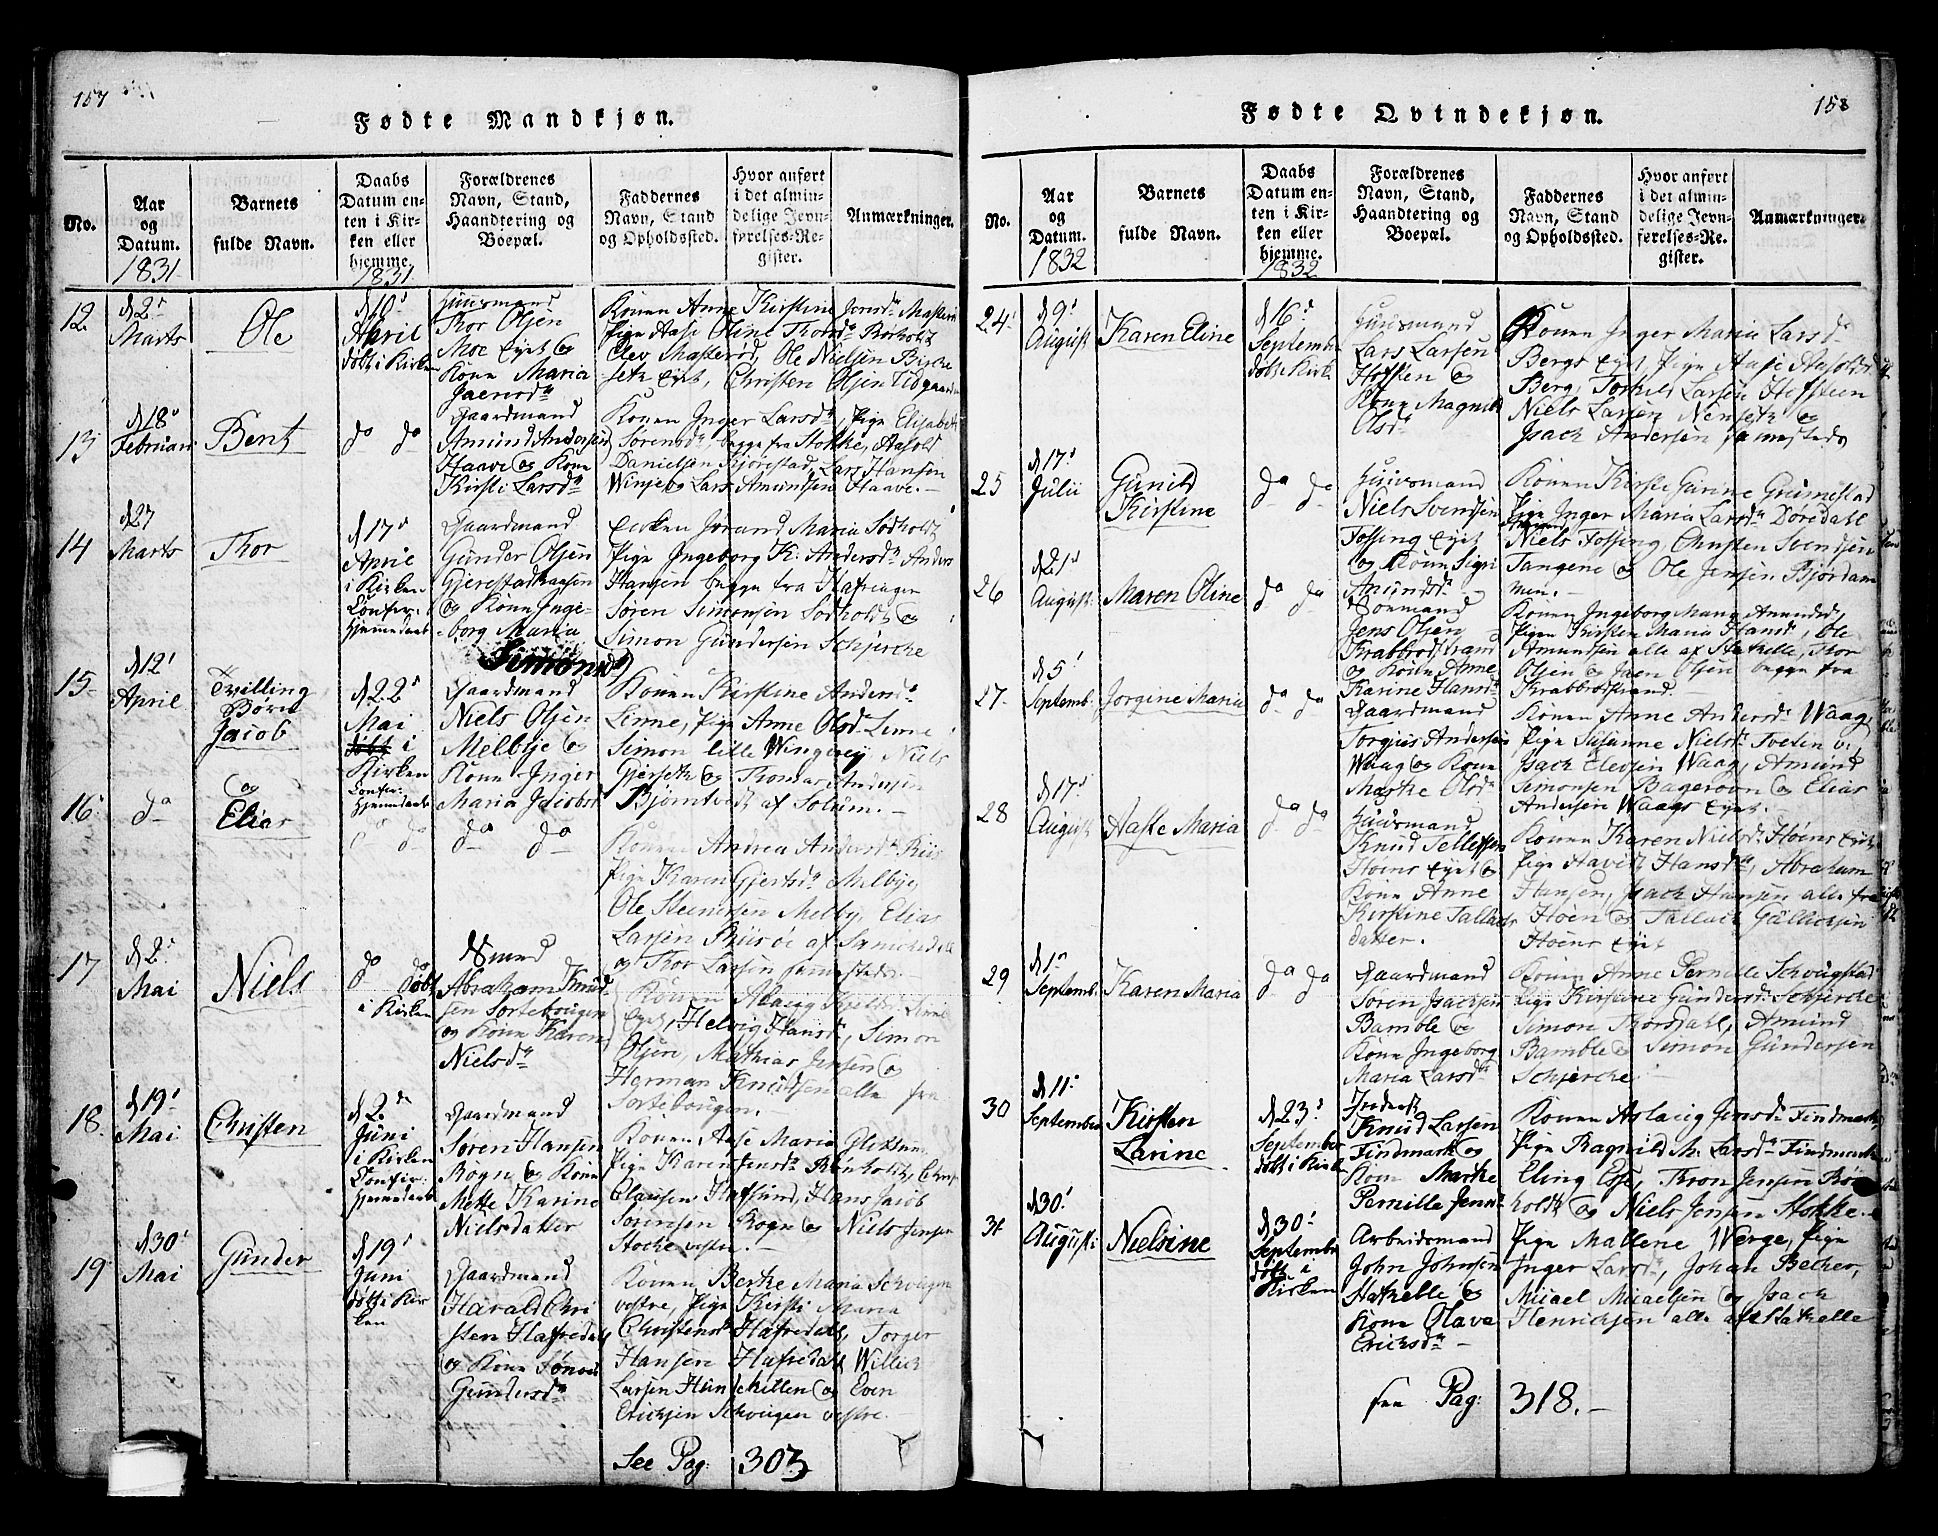 157
Fødte Mandkjøn.
No.
Aar
og
Datum.
1831
Barnets
fulde Navn.
Daabs
Datum en-
ten i Kir-
ken eller
hjemme.
1831
Forældrenes
Navn, Stand,
Haandtering og
Boepæl.
Faddernes
Navn, Stand
og Opholdssted.
Hvor anført
i det almin-
delige Jevn-
førelses-Re-
gister.
Anmærkninger.
12.
d 2
Marts
Ole
d 10
April
døbt i Kirken
Huusmand
Thor Olsen
Moe Eyet og
Kone Maria
Konen Anne Kirstine Jensd
Pige Aase Oline Thorsd
Ole Nielsen
Eyet, Christen Olsen
13
d 18
Februari
Bent
do do
Gaardmand
Amund Andersen
Haave og Kone
Kirsti Larsd
Konen Inger Larsd Pige Elisabeth
Sørensd begge fra Stokke, Aasold
Danielsen Bjørestad, Lars Hansen
Winje og Lars Amundsen Haave.
14
d 27
Marts
Thor
d 17
April
i Kirken
Confer:
Hjemmedaab
Gaardmand
Gunder Olsen
Gjerestadhaasen
og Kone Inge-
borg Maria
Simonsd
Enken Jorand Maria Sødholdt
Pige Ingeborg K: Andersd Anders
Hansen begge fra Hafringen
Søren Simonsen Sødholdt og
Simon Gundersen Schjerche
15
d 12
April
Tvilling
Børn
Jacob
d 22
Mai
døbt i
Kirken
Confer:
Hjemmedaab
Gaardmand
Niels Olsen
Melbye og
Kone Inger
Maria Jacobsd
Konen Kirstine Andersd
Linne, Pige Anne Olsd Linne
Simon lille Wingerej, Niels
Gjerseth og Thomas Andersen
Bjørntvedt af Solum.
16
do
og
Elias
do do
do do
Konen Andrea Andersd Riis
Pige Karen Gjertsd Melbye,
Ole Steensen Melby, Elias
Larsen Riisøe af Sannikedal
og Thor Larsen sammesteds.
17
d 2
Mai
Niels
do døbt
i Kirken
Smed
Abraham Knud-
sen Sortebougen
og Kone Karen
Nielsd
Konen Aslaug Kjelds Linne
Eyet, Helvig Hansd, Simon
Olsen, Mathias Jensen og
Herman Knudsen alle fra
Sortebougen.
18.
d 19
Mai
Christen
d 2
Juni
i Kirken
Confer:
Hjemmedaab
Gaardmand
Søren Hansen
Rogn og Kone
Mette Karine
Nielsdatter
Konen Aase Maria
Pige Karen Jensd Rønholdt,
Clausen Hafsund, Hans Jacob
Sørensen Rogn og Niels Jensen
Stocke vestre.
19
d 30
Mai
Gunder
d 19
Juni
døbt i Kir
ken
Gaardmand
Harald Chri
sten Hafredal
og Kone
Gundersd
Konen Berthe Maria Schougen
vestre, Pige Kirsti Maria
Christensd Hafredahl, Torger
Hansen Hafredahl Willich
Larsen og Even
Erichsen Schougen vestre.
See Pag: 303
158
Fødte Qvindekjøn.
No.
Aar
og
Datum.
1832
Barnets
fulde Navn.
Daabs
Datum en-
ten i Kir-
ken eller
hjemme.
1832
Forældrenes
Navn, Stand,
Haandtering og
Boepæl.
Faddernes
Navn, Stand
og Opholdssted.
Hvor anført
i det almin-
delige Jevn-
førelses-Re-
gister.
Anmærkninger.
24
d 9
August
Karen Eline
d 16
September
døbt i Kirk
Huusmand
Lars Larsen
og
Kone Magnild
Olsd
Konen Inger Maria Larsd
Bergs Eyet, Pige Aase Aasoldsd
Berg, Torkild Larsen
Niels Larsen Nenseth og
Isach Andersen sammesteds
25
d 17
Julii
Gunild
Kirstine
do do
Huusmand
Niels Svendsen
Fossing Eyet
og Kone Sigri
Amundsd
Konen Kirsti Gurine Grumestad
Pige Inger Maria Larsd Dørdahl
Niels Fossing, Christen Svendsen
Tangene og Ole Jensen Bjordam
men.
26
d 21
August
Maren Oline
do do
Søemand
Jens Olsen
Krabbrodstrand
og Kone Anne
Karine Hansd
Konen Ingeborg Marg: Amundsd
Pigen Kirsten Maria Hansd, Ole
Amundsen alle af Stathelle, Thor
Olsen og Jaen Olsen begge fra
Krabbrodstrand.
27
d 5
Septemb.
Jorgine Maria
do do
Gaardmand
Jorgius Andersen
Waag og Kone
Marthe Olsd
Konen Anne Andersd Waag,
Pige Susanne Nielsd Tveden v:
Isach Elevsen Waag, Amund
Simonsen Bagerovn og Elias
Andersen Waags Eyet.
28
d 17
August
Aaste Maria
do do
Huusmand
Knud Tellefsen
Høens Eyet og
Kone Anne
Kirstine Tallachs
datter.
Konen Karen Nielsd Høens Eyet
Pige Havild Hansd, Abraham
Hansen, Isach Hansen alle fra
Høen og Tallach
Høens Eyet
29
d 1
Septemb.
Karen Maria
do do
Gaardmand
Søren Isachsen
Bamble og
Kone Ingeborg
Maria Larsd
Konen Anne Pernille Schougstad
Pige Kirstine Gundersd Schjerche
Simon Thorsdahl, Amund
Bamble og Simon Gundersen
Schjerche.
30
d 11
September
Kirsten
Larine
d 23
September
døbt i Kirk
Inderst
Knud Larsen
Findmark og
Kone Marthe
Pernille Jensd
Konen Aslaug Jensd Findmark
Pige Ragnild M: Larsd Findmark
Eling Esse, Thron Jensen Røn
holdt og Niels Jensen Stokke.
31
d 30
Augusti
Nielsine
d 30
Septembr
døbt i
Kirken
Arbeidsmand
John Johnsen
Stathelle og
Kone Olava
Ericksd
Pige Mallene Werge, Pige
Inger Larsd, Johan Becher,
Micael Micaelsen og Isach
Henrichsen alle af Stathelle
see Pag: 318.